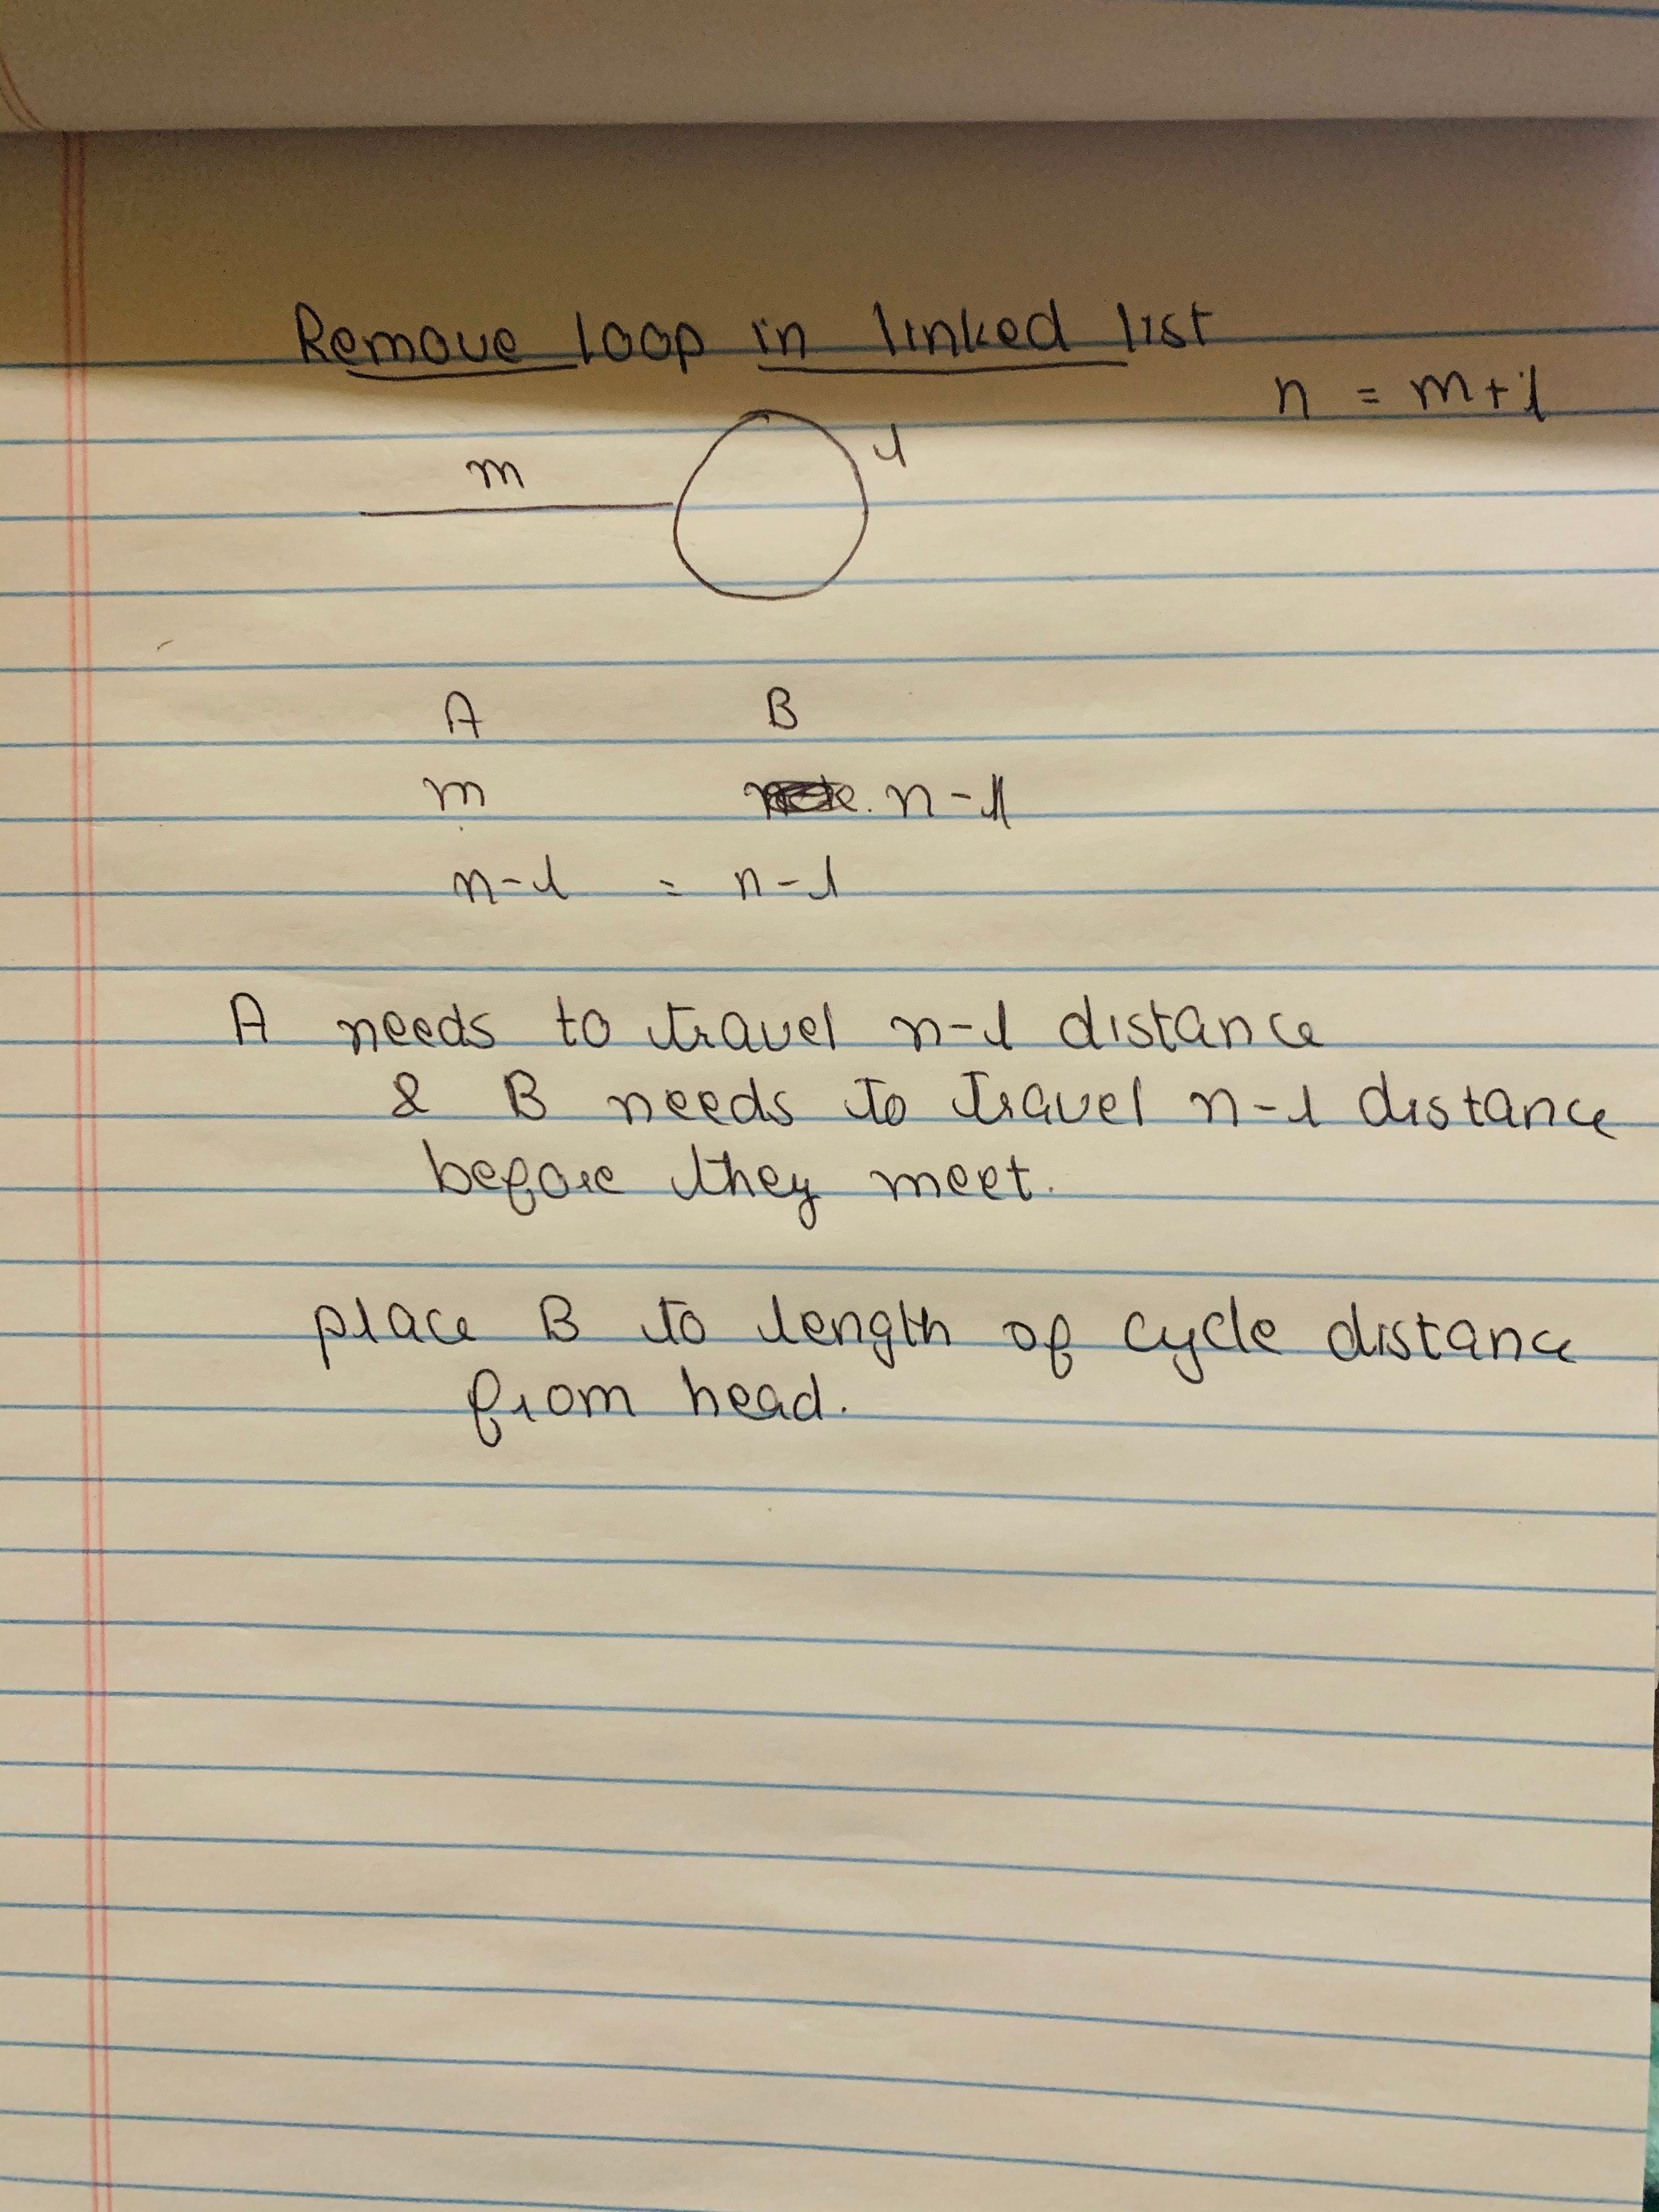 Remove loop in linked list
n = m+l
m
l
A B
m n-l
n-l = n-l
A needs to travel n-l distance
& B needs to travel n-l distance
before they meet.
place B to length of cycle distance
from head.